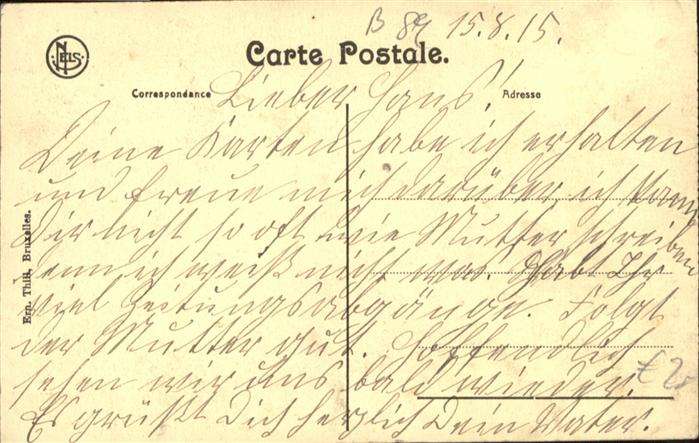 B 89 15.8.15.
NELS
Carte Postale.
Correspondance
Adresse
Lieber Hans!
Deine Karten habe ich erhalten
und freue mich darüber ich kann
Dir nicht so oft wie Mutter schreiben
denn ich weiß nicht was. Habt Ihr
viel Zeitungsabgänge. Folgt
der Mutter gut. Hoffendlich
sehen wir uns bald wieder.
Es grüßt Dich herzlich Dein Vater.
Ern. Thill, Bruxelles.